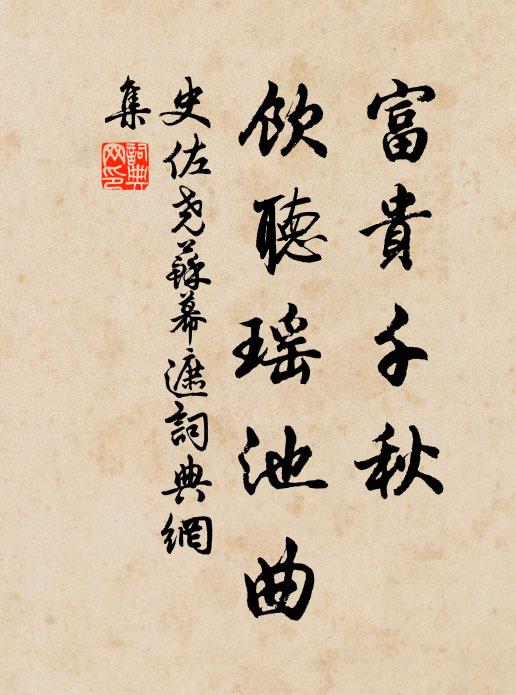 富貴千秋
飲聽瑶池曲
史佐堯蘇幕遮詞典網
集
詞典
网印